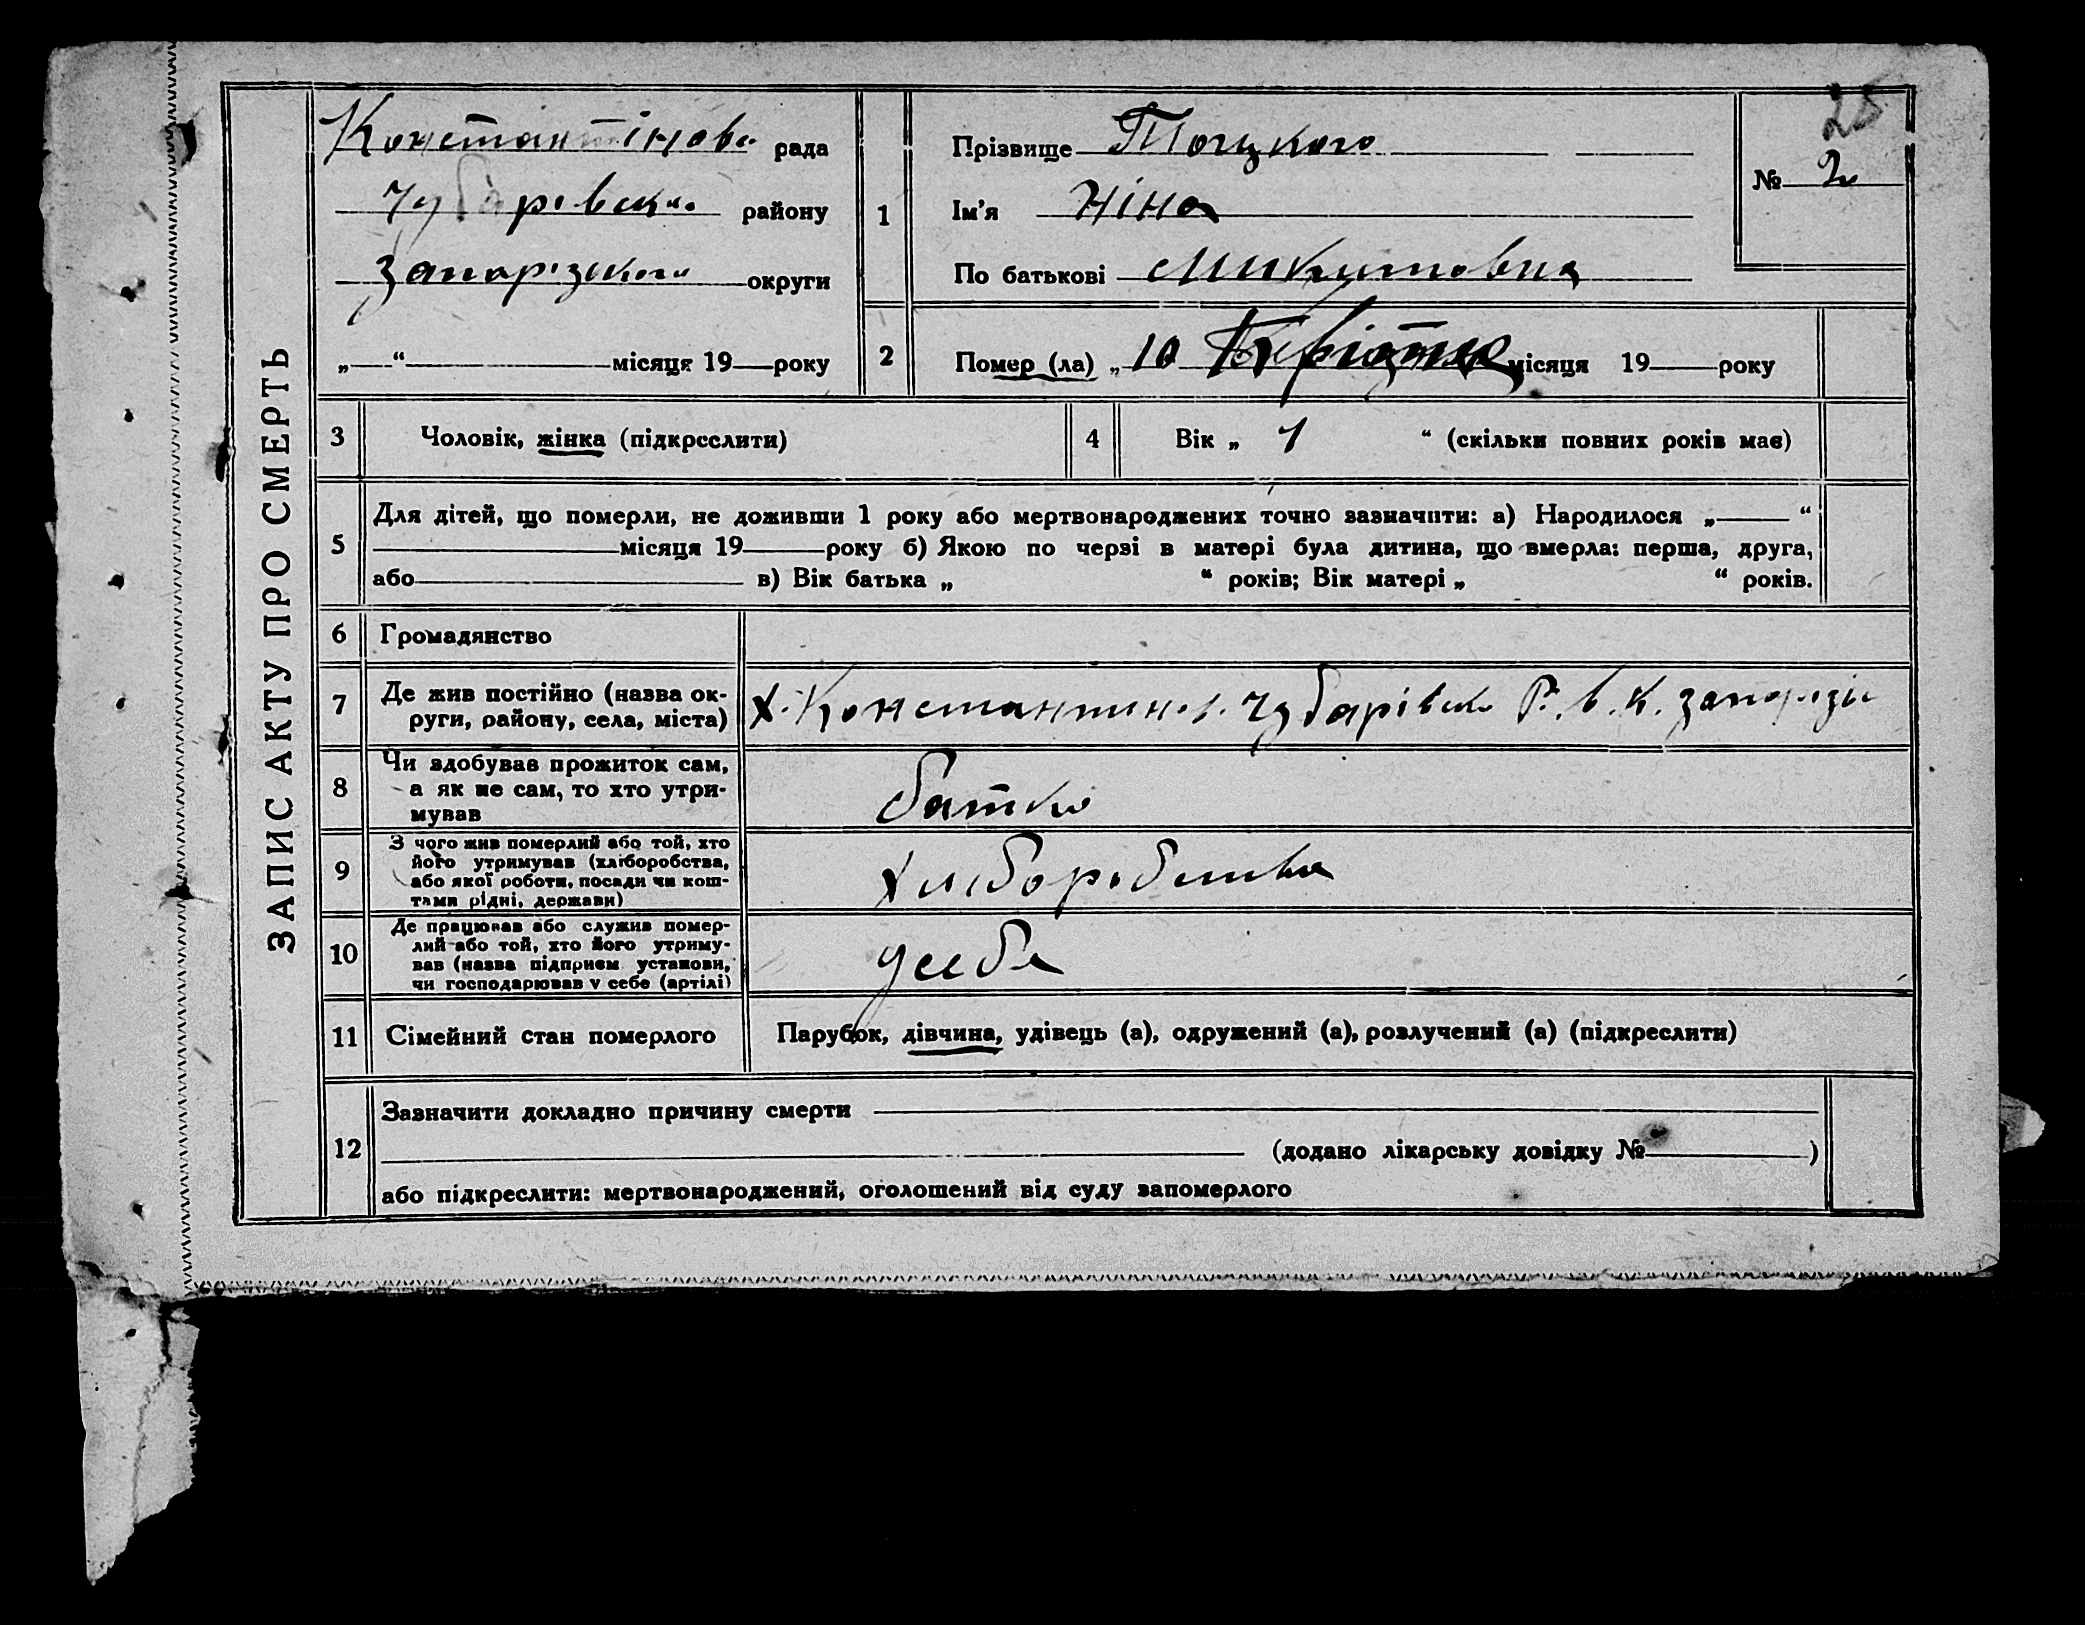 ЗАПИС АКТУ ПРО СМЕРТЬ
25
Константінов рада
Чубарівск району
Запоріzького округи
„—“ місяця 19—року
1
Прізвище Тоцкого
Ім'я Ніна
По батькові Микитовна
№ 2
2
Помер (ла) „10 місяця 19—року
3 Чоловік, жінка (підкреслити)
4 Вік „ 1 “ (скільки повних років має)
5
Для дітей, що померли, не доживши 1 року або мертвонароджених точно зазначити: а) Народилося „—“
місяця 19—року б) Якою по черзі в матері була дитина, що вмерла: перша, друга,
або— в) Вік батька „ “ років; Вік матері „ “ років.
6 Громадянство
7 Де жив постійно (назва ок-
руги, району, села, міста)
х. Константинов. Чубарівск Р.В.К. Запорізь
8 Чи здобував прожиток сам,
а як не сам, то хто утри-
мував
батько
9 З чого жив померлий або той, хто
його утримував (хліборобства,
або якої роботи, посади чи кош-
тами рідні, держави)
хліборобства
10 Де працював або служив помер-
лий або той, хто його утриму-
вав (назва підприєм установи,
чи господарював у себе (артілі)
у себе
11 Сімейний стан померлого
Парубок, дівчина, удівець (а), одружений (а), розлучений (а) (підкреслити)
12
Зазначити докладно причину смерти
(додано лікарську довідку №—)
або підкреслити: мертвонароджений, оголошений від суду запомерлого